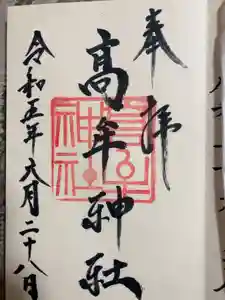 奉拝
髙牟神社
令和五年六月二十八日
神社